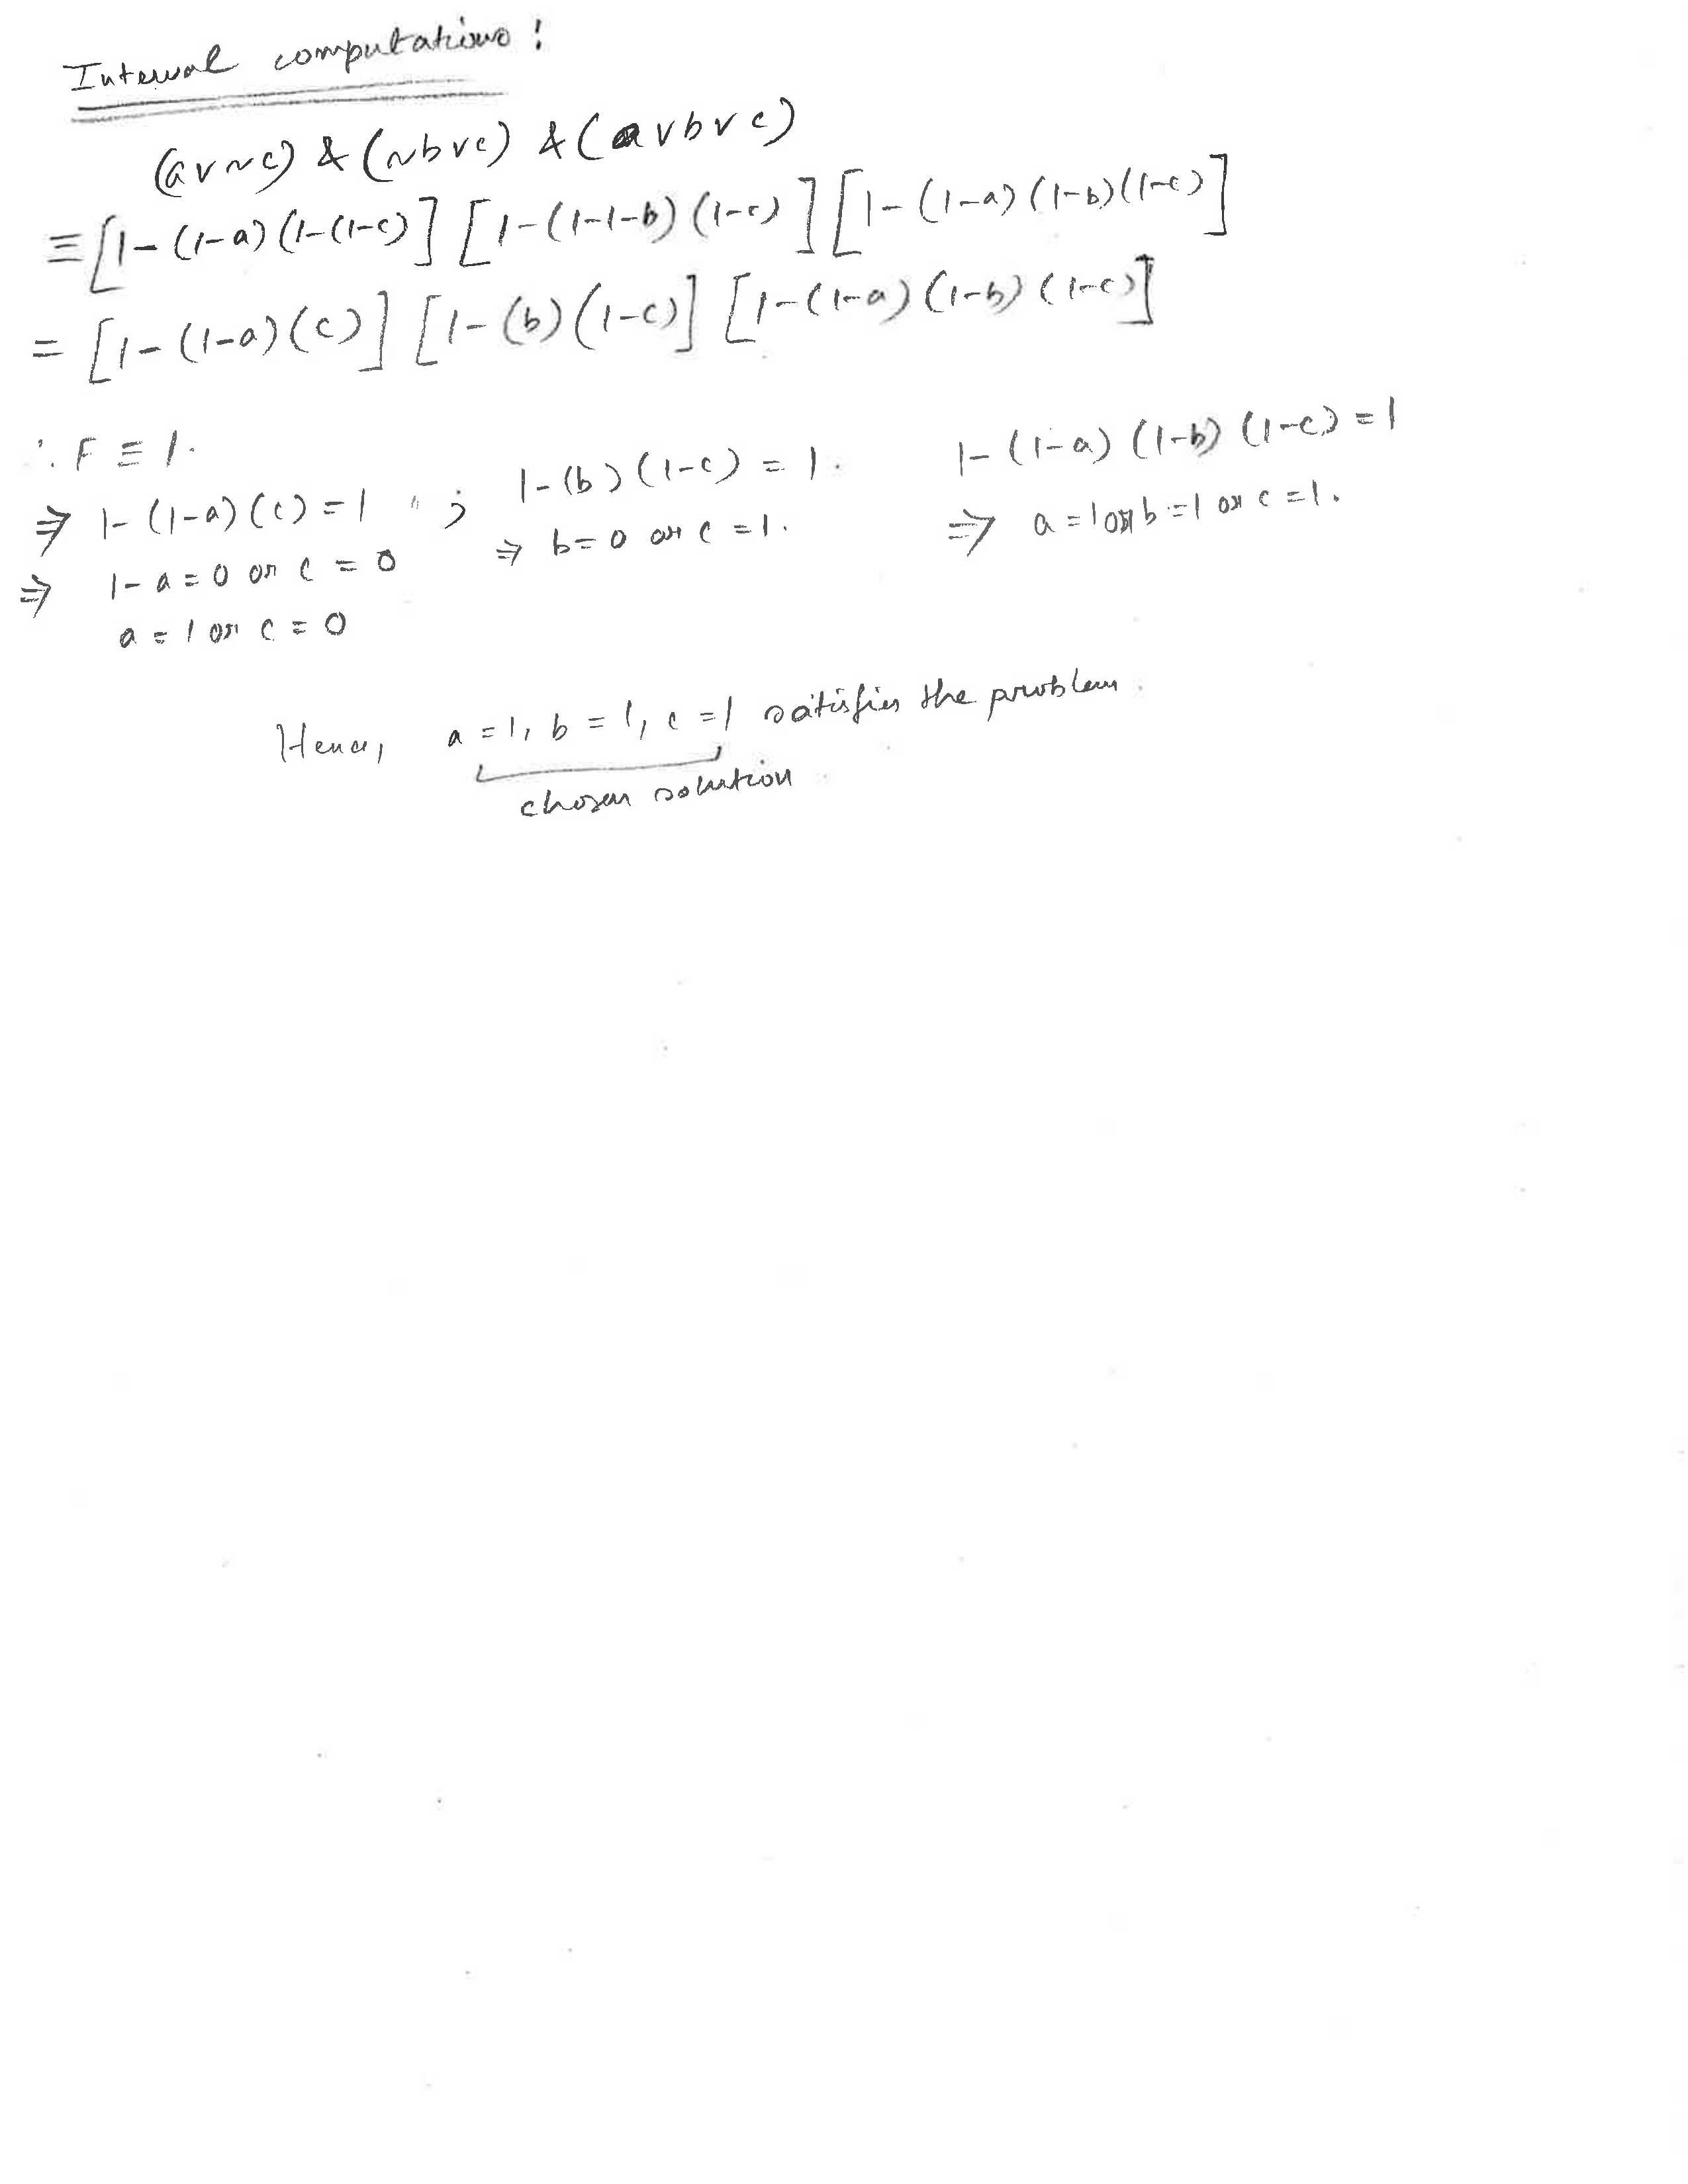 Interval computations:
(a v ~c) & (~b v c) & (a v b v c)
≡ [1-(1-a)(1-(1-c)] [1-(1-1-b)(1-c)] [1-(1-a)(1-b)(1-c)]
= [1-(1-a)(c)] [1-(b)(1-c)] [1-(1-a)(1-b)(1-c)]
∵ F ≡ 1.
⇒ 1-(1-a)(c) = 1 ; 1-(b)(1-c) = 1. 1-(1-a)(1-b)(1-c) = 1
⇒ 1-a = 0 or c = 0 ⇒ b = 0 or c = 1. ⇒ a = 1 or b = 1 or c = 1.
a = 1 or c = 0
Hence, a = 1, b = 1, c = 1 satisfies the problem.
chosen solution.